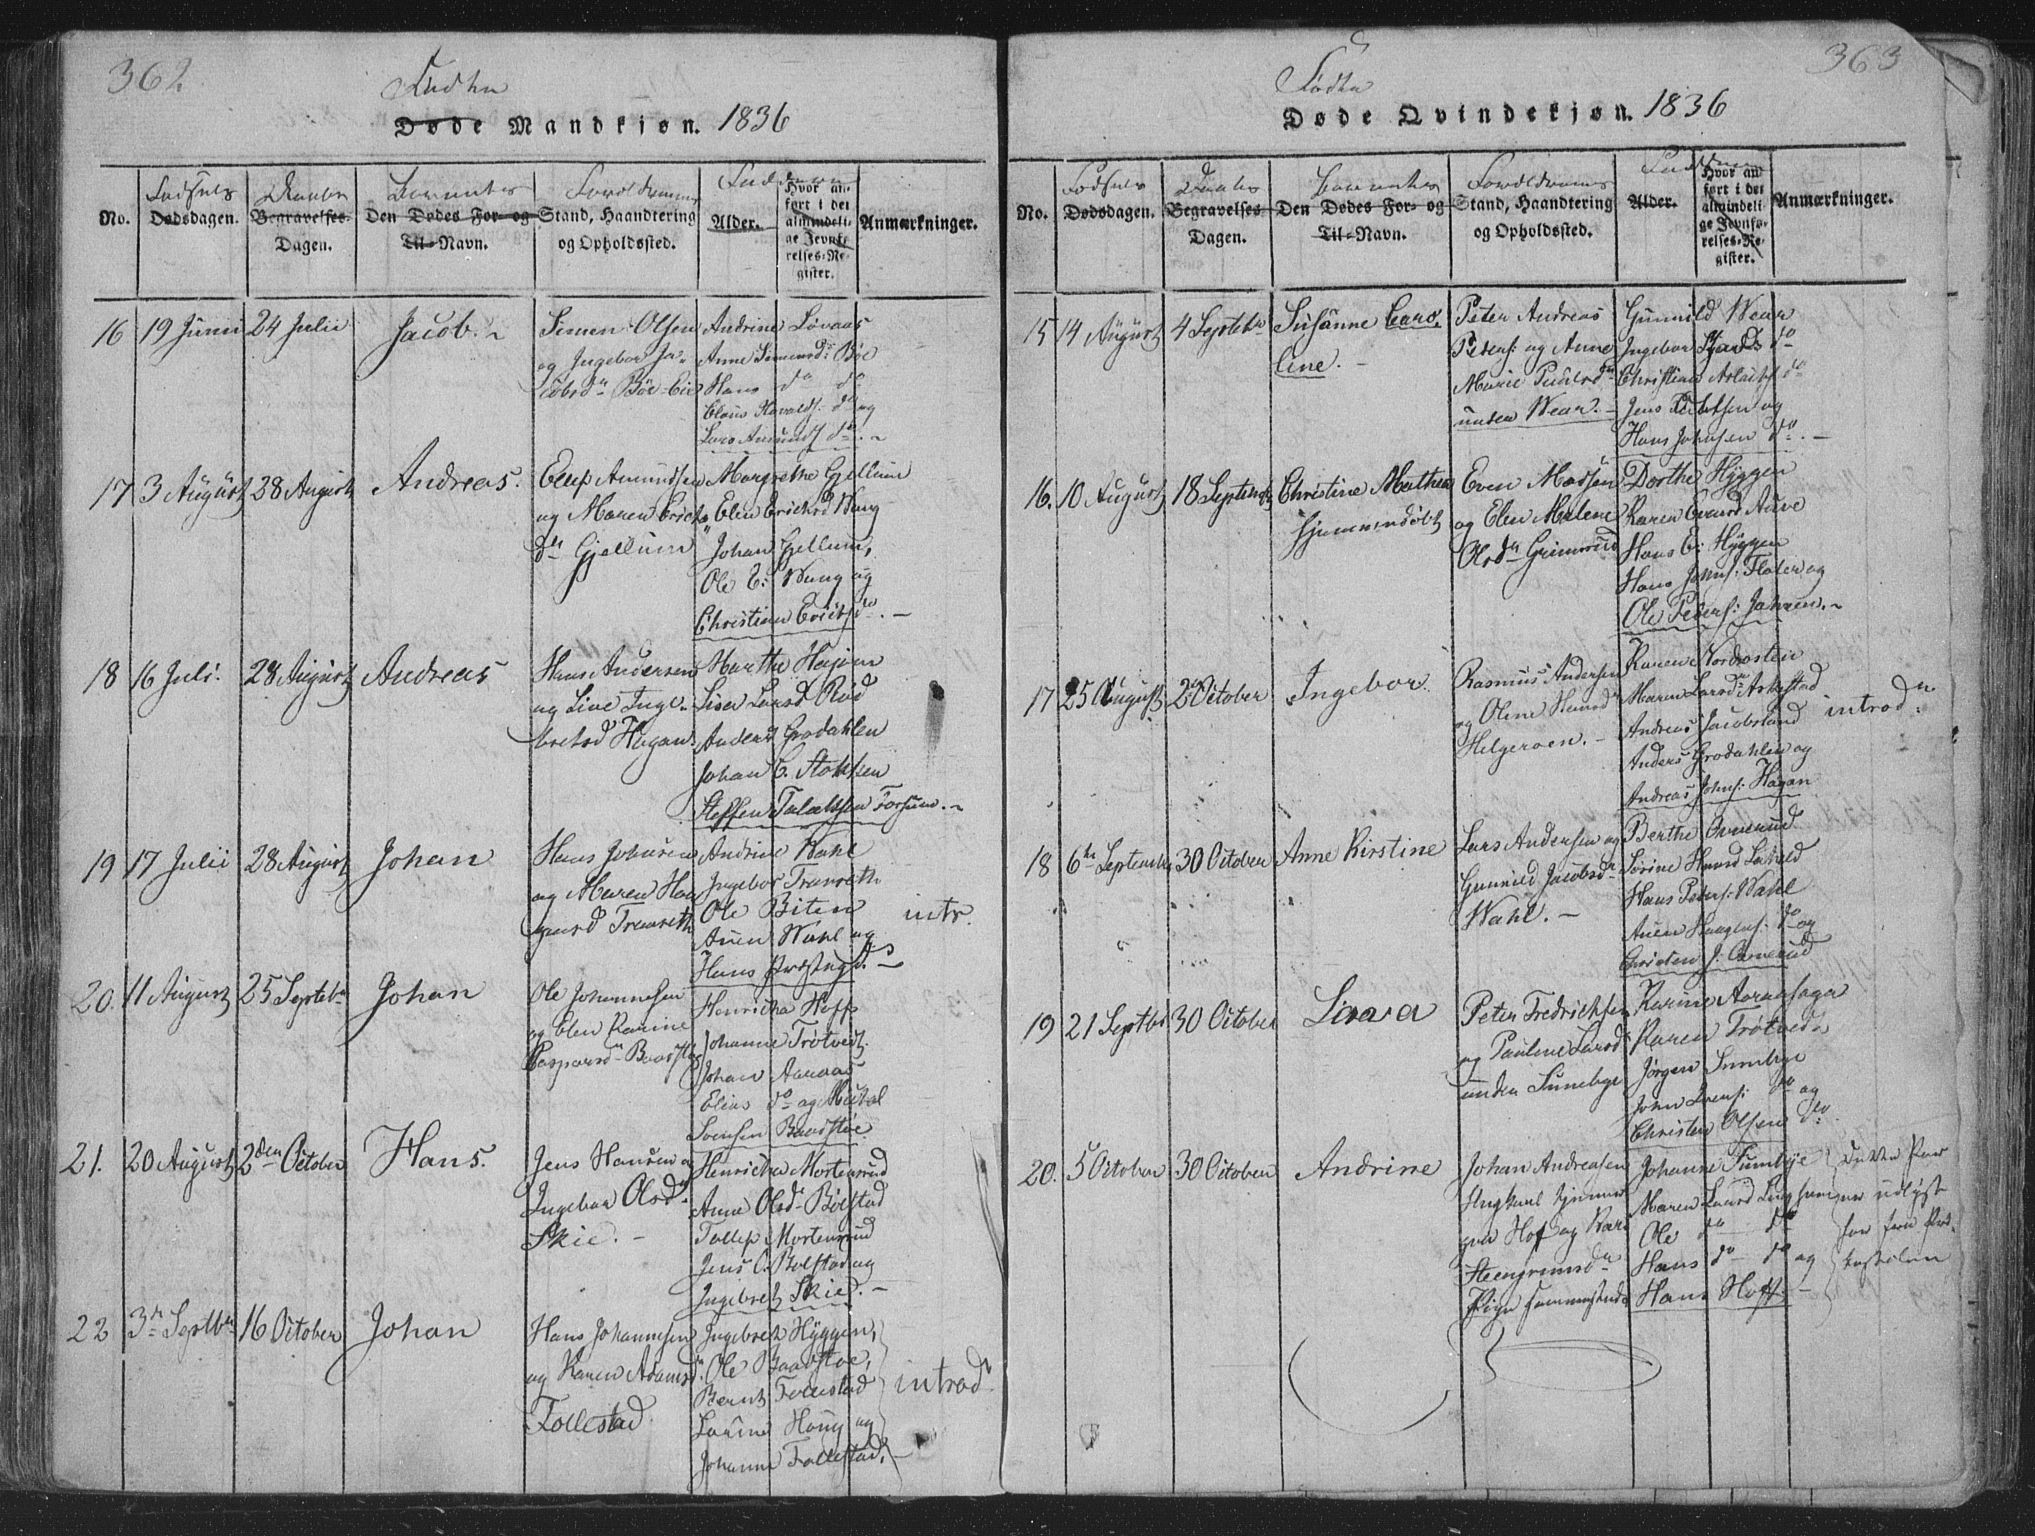 362
Fødte
Døde Mandkjøn. 1836
No.
Fødsels
Dødsdagen.
Daabs
Begravelses-
Dagen.
Barnets
Den Dødes For- og
Til-Navn.
Forældrenes
Stand, Haandtering
og Opholdssted.
Faddere
Alder.
Hvor an-
ført i det
almindeli-
ge Jevnfø-
relses-Re-
gister.
Anmærkninger.
16 19 Junii 24 Julii Jacob.
Simen Olsen
og Ingebor Ja-
cobsdr Böe-Eie
Andrine Lövaas
Anne Simensdr Böe
Hans do do
Claus Havalds. do og
Lars Amunds. do.
17 3 August 28 August Andreas.
Ellef Amundsen
og Maren Erichs
dr Gjellum
Margrethe Gjellum
Elen Ericksd Wang
Johan Gjellum,
Ole E: Wang og
Christian Erichs. do.
18 16 Juli. 28 August Andreas
Hans Andersen
og Live Inge-
bretsd Hagan.
Marthe Hagan
Lisa Larsd Rød
Anders Grodahlen
Johan C.
Steffen Forsum.
19 17 Julii 28 August Johan
Hans Johnsen
og Maren Haa
gensd Tranreth
Andrine Wahl
Ingebor Tranreth
Ole Biten
Auen Wahl og
Hans Præstegd.
intr.
20. 11 August 25 Septebr Johan
Ole Johannesen
og Elen Karine
Caspersdr Baadstøe
Henricha Hoff
Johanne Trötvedt
Johan Aaraas
Elias do og Mickel
Svensen Baadstøe
21. 20 August 2den October Hans.
Jens Hansen og
Ingebor Olsdr
Skie.
Henricha Mortensrud
Anne Olsd Bölstad
Tollef Mortensrud
Jens C. Bolstad og
Ingebret Skie.
22 3de Septbr 16 October Johan
Hans Johannesen
og Karen Adamsdr
Follestad
Ingebret Hyggen,
Ole Baadstøe,
Bernt Follestad
Laurine Houg og
Johanne Follestad.
introd.
363
Fødte
Døde Qvindekjøn. 1836
No.
Fødsels
Dødsdagen.
Daabs
Begravelses-
Dagen.
Barnets
Den Dødes For- og
Til-Navn.
Forældrenes
Stand, Haandtering
og Opholdssted.
Faddere
Alder.
Hvor an-
ført i det
almindeli-
ge Jevnfø-
relses-Re-
gister.
Anmærkninger.
15 14 August 4 Septebr Susanne Caro-
line.
Peter Andreas
Peders: og Anne
Marie Paulsdr
under Wear.
Gunnild Wear
Ingebor do
Christian Aslachs. do
Jens og
Hans Johnsen do.
16. 10 August 18 Septembr Christine Mathea
hjemmedøbt
Even Madsen
og Elen Malene
Olsdr Grimsrud
Dorthe Hyggen
Karen Evensd Auve
Hans E: Hyggen
Hans Johns: Flater og
Ole Peders: Jahren.
17 25 August 2 October Ingebor.
Rasmus Andersen
og Olene Hansdr
Helgeroen.
Karen Nordrosten
Maren Larsdr Askestad
Andreas Jacobsland
Anders Grodahlen og
Andreas Johns: Hagan
introdn
18 6te September 30 October Anne Kirstine
Lars Andersen og
Gunnild Jacobsdr
Wahl.
Berthe Ovnerud
Sörine Hansd
Hans Peders: Wahl
Auen Haagens: do og
Christen J: Ovnerud
19 21 Septbr 30 October Laara
Peter Fredrichsen
og Pauline Larsdr
under Sundbye
Karine Aaraasaga
Karen Trötvedt
Jørgen Sundbye
John Svens: do og
Christen Olsen do.
20. 5 October 30 October Andrine
Johan Andreasen
Hof og Kari
Steengrimsdr
Pige sammesteds
Johanne Tumbye
Maren Larsd
Ole do do
Hans do do og
Hans Hoff.
Dette Par
er udlyst
her fra Præ-
kestolen